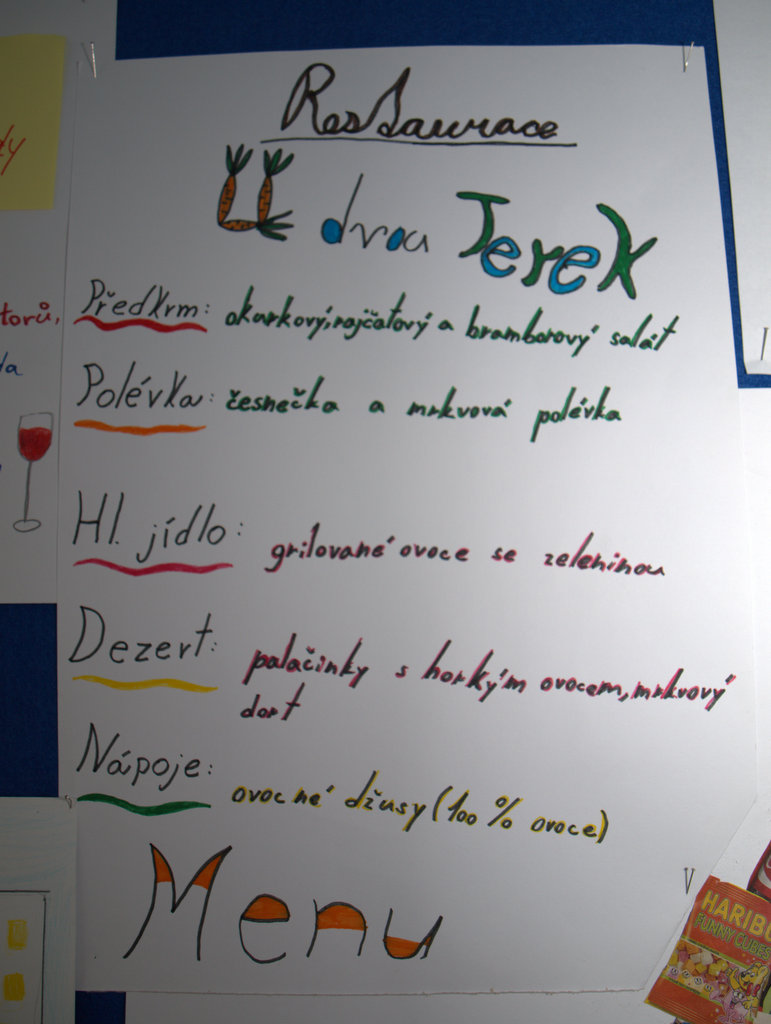 Restaurace
U dvou Terek
Předkrm: okurkový, rajčatový a bramborový salát
Polévka: česnečka a mrkvová polévka
Hl. jídlo: grilované ovoce se zeleninou
Dezert: palačinky s horkým ovocem, mrkvový
dort
Nápoje: ovocné džusy (100 % ovoce)
Menu
torů,
HARIBO
FUNNY CUBES